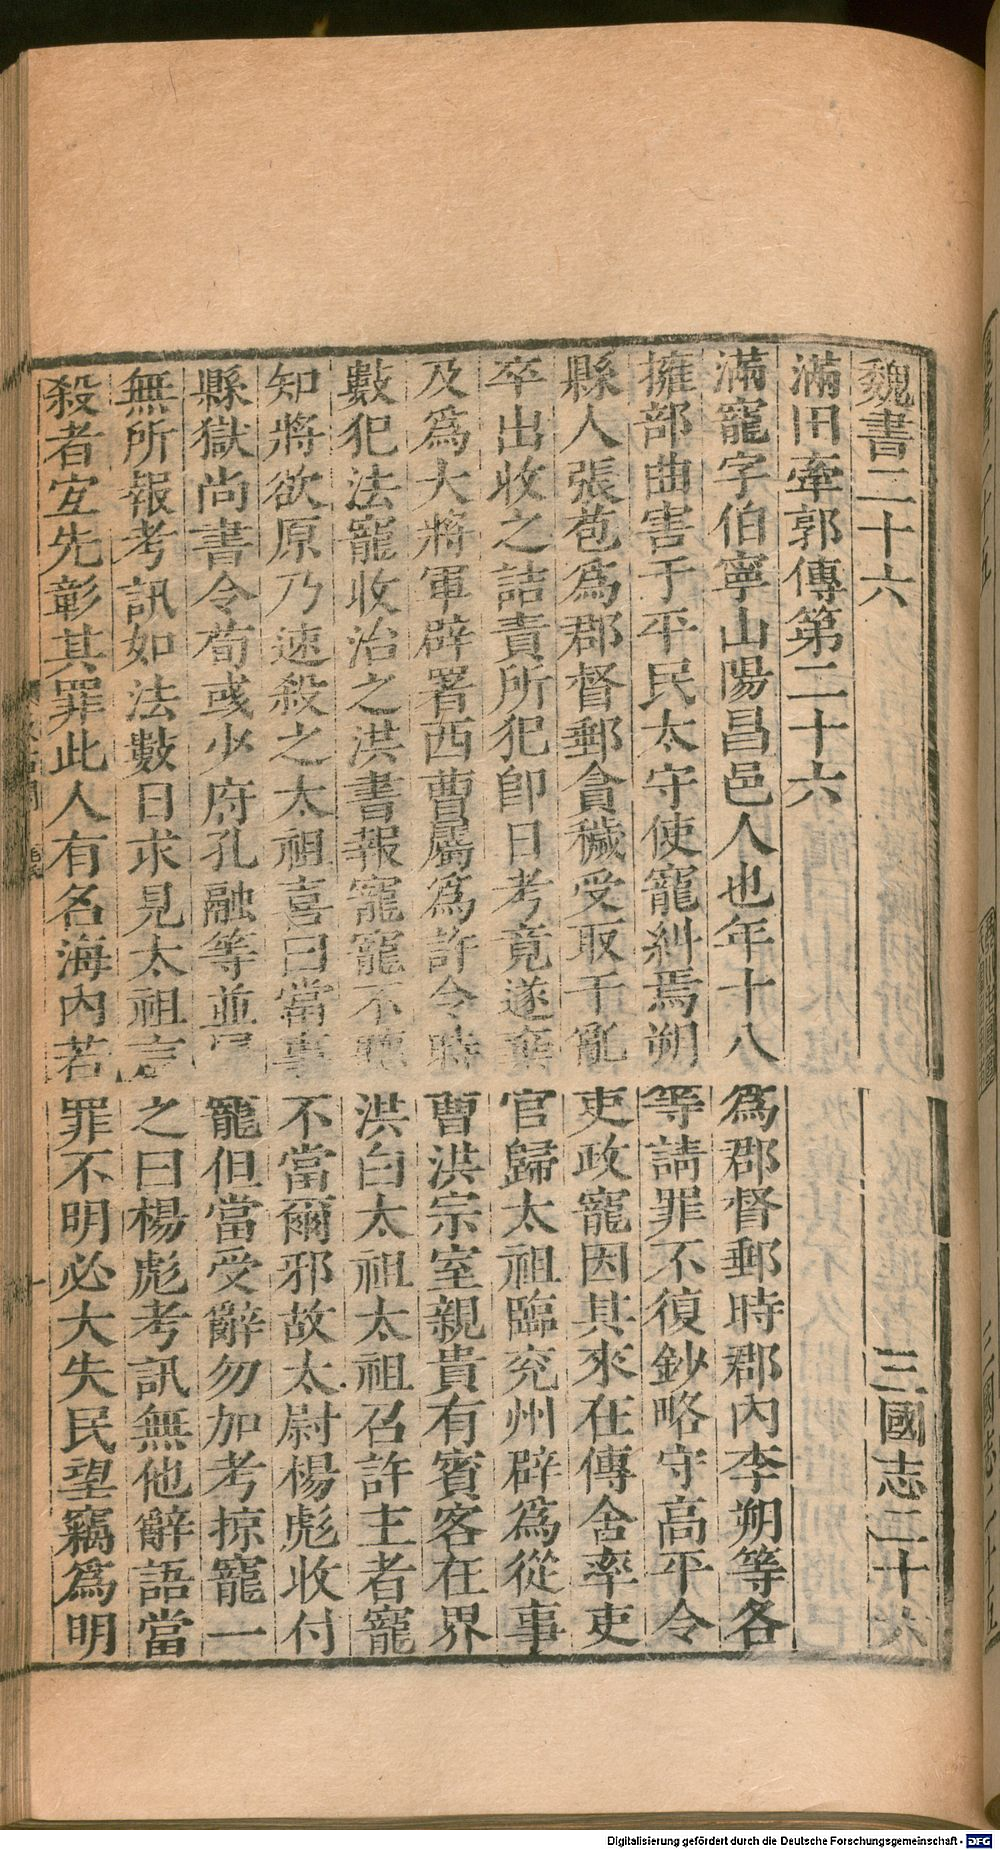 魏書二十六 三國志二十六
滿田牽郭傳第二十六
滿寵字伯寧山陽昌邑人也年十八爲郡督郵時郡內李朔等各
擁部曲害于平民太守使寵糾焉朔等請罪不復鈔略守高平令
縣人張苞爲郡督郵貪穢受取干亂吏政寵因其來在傳舍率吏
卒出收之詰責所犯卽日考竟遂棄官歸太祖臨兖州辟爲從事
及爲大將軍辟署西曹屬爲許令時曹洪宗室親貴有賓客在界
數犯法寵收治之洪書報寵寵不聽洪白太祖太祖召許主者寵
知將欲原乃速殺之太祖喜曰當事不當爾邪故太尉楊彪收付
縣獄尚書令荀彧少府孔融等並屬寵但當受辭勿加考掠寵一
無所報考訊如法數日求見太祖言之曰楊彪考訊無他辭語當
殺者宜先彰其罪此人有名海內若罪不明必大失民望竊爲明
Digitalisierung gefördert durch die Deutsche Forschungsgemeinschaft - DFG